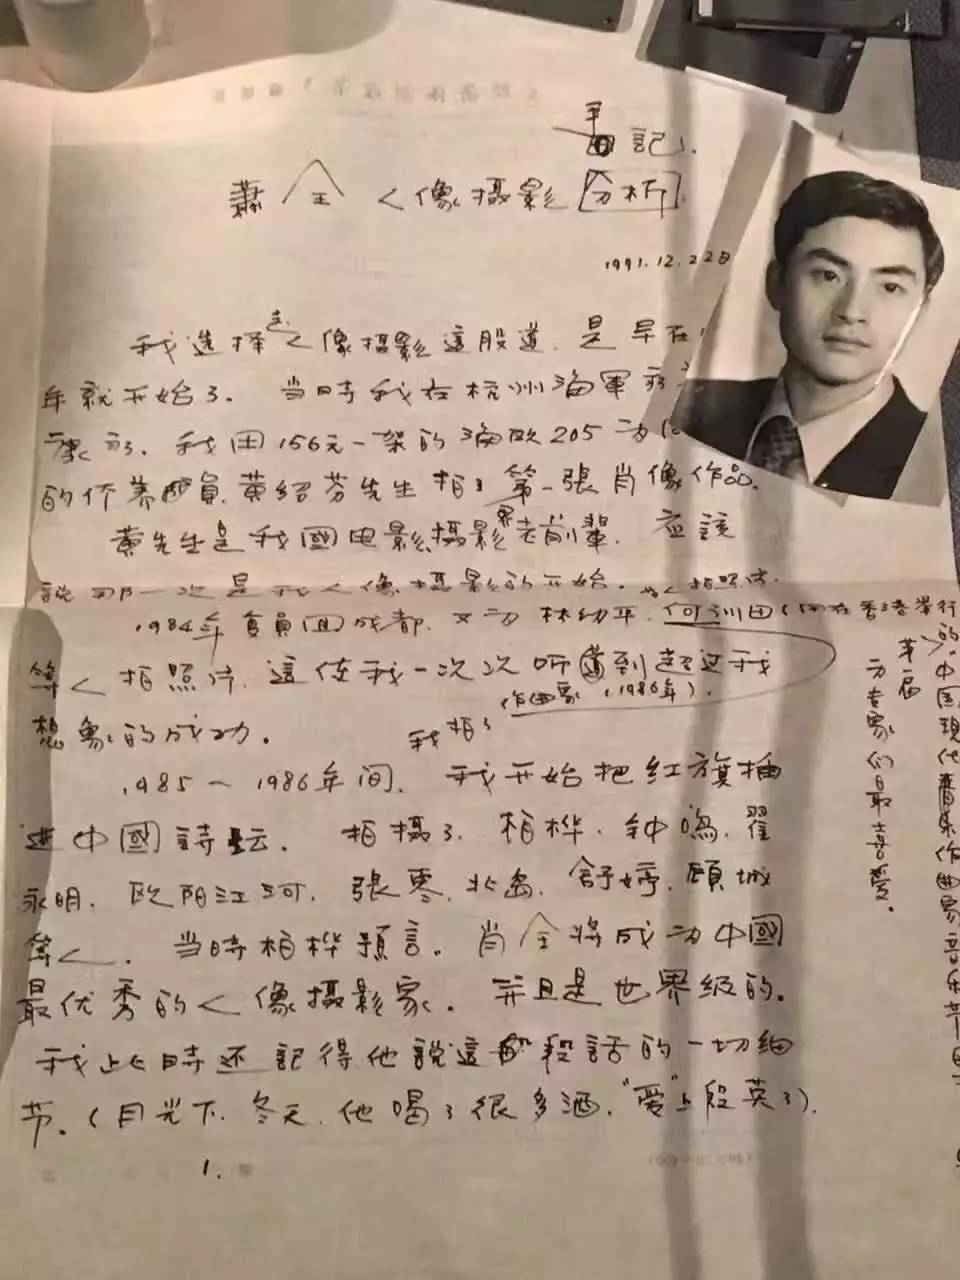 手記
蕭全人像攝影[分析]
1991.12.22日
我选择走人像攝影這股道. 是早在
年就开始了. 当時我在杭州海軍
我用156元一架的海欧205为
的 黄绍芬先生拍了第一張肖像作品.
黄先生是我國电影攝影界老前輩. 应該
說那一次是我人像攝影的开始.
1984年复員回成都. 又为林幼平. 何训田(
等人拍照片. 這使我一次次 到超过我
作曲家(1986年).
想象的成功.
我拍了
1985~1986年间. 我开始把红旗插
进中國詩坛. 拍攝了. 柏桦. 钟鳴. 翟
永明. 欧阳江河. 張枣. 北岛. 舒婷. 顾城
等人. 当時柏桦預言. 肖全将成为中國
最优秀的人像攝影家. 并且是世界级的.
我此時还記得他說這段話的一切细
节.(月光下. 冬天. 他喝了很多酒. "爱"上段英了).
在香港举行
的. 中国现代 作曲家音乐节
第一届
为专家们最喜爱.
1.